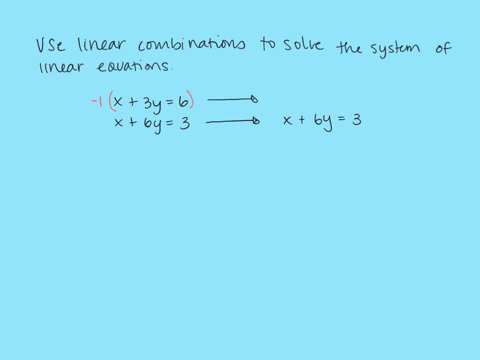 Use linear combinations to solve the system of
linear equations.
-1 (x + 3y = 6) →
x + 6y = 3 → x + 6y = 3